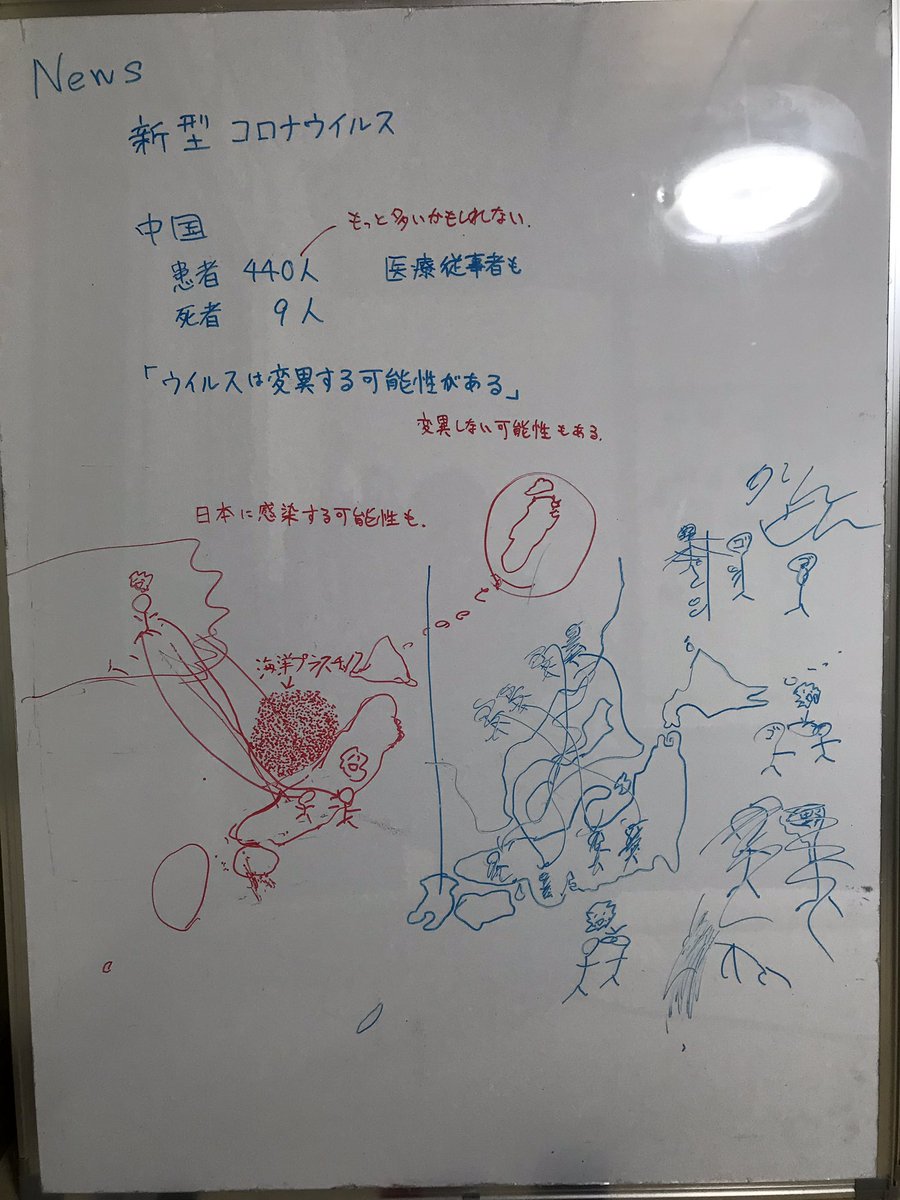 News
新型 コロナウイルス
中国
もっと多いかもしれない.
患者 440人 医療従事者も
死者 9人
「ウイルスは変異する可能性がある」
変異しない可能性もある.
日本に感染する可能性も.
海洋プラスチック